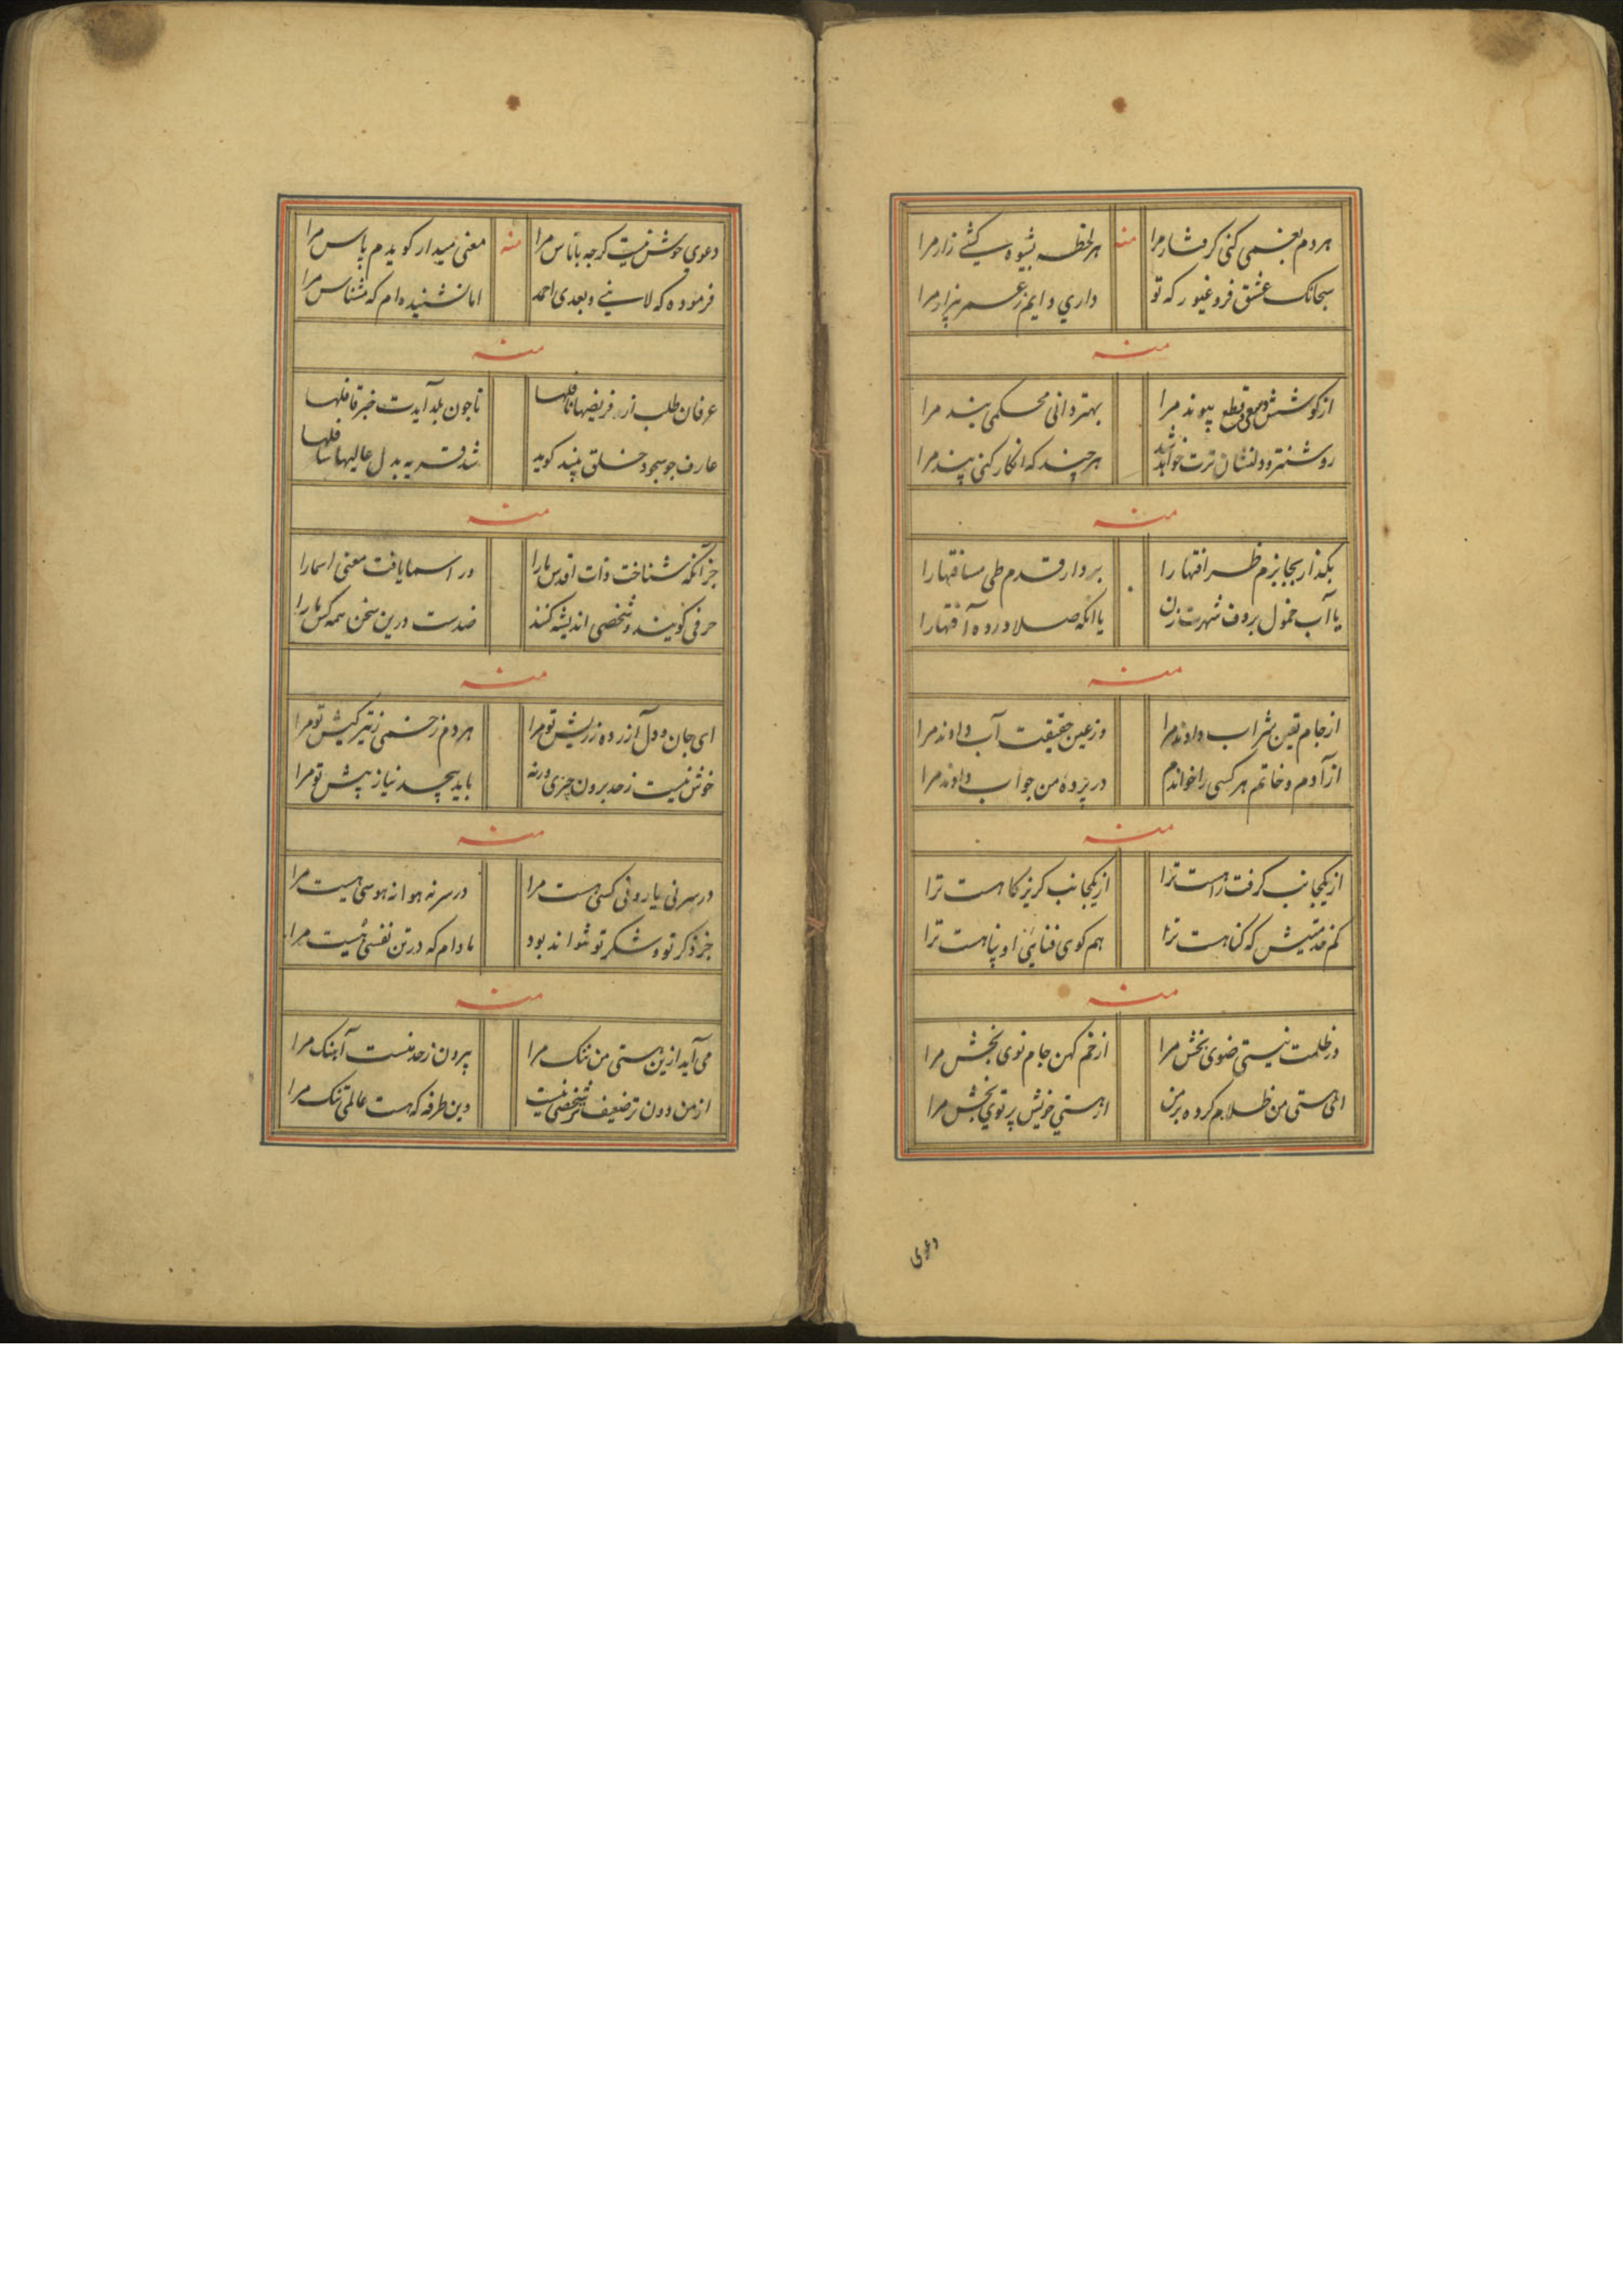 هردم بغمی کنی کرفتار مرا منه هر لحظه بشیوه کشے زار مرا
سبحانک عشق فرو غیور که تو داری دایم ز عمر بیزار مرا
منه
از کوشش وسعی قطع پیوند مرا بهتر دانی محکمی بند مرا
روشنتر و دلنشان ترت خواهد شد هر چند که انکار کنی پند مرا
منه
بکذار بجا بزم ظرافتها را بردار قدم طی مسافتها را
یا آب خمول بر وف شهرت زن یا انکه صلا در ده آفتها را
منه
از جام یقین شراب دادند مرا وز عین حقیقت آب دادند مرا
از آدم و خاتم هر کسی را خواندم در پرده من جواب دادند مرا
منه
از یکجانب کرفت راهست ترا از یکجانب کریز کاهست ترا
کم که کناهست ترا هم کوی فنا او پناهست ترا
منه
در ظلمت نیستی ضوی بخش مرا از خم کهن جام نوی بخش مرا
ای هستی من ظلام کرده بر من از هستی خویش پرتوی بخش مرا
دعوی
دعوی خوش نیست کرچه با ناس مرا منه معنی میدار کویدم پاس مرا
فرموده که لا نبی و بعدی احمد اما نشنیده ام که مشناس مرا
منه
عرفان طلب از فریضها نافلها تا چون بلد آیدت خبر قافلها
عارف چو سجود خلق بیند کوید شد قریه بدل عالیها سافلها
منه
جز آنکه شناخت ذات اقدس ما را در اسما یافت معنی اسما را
حرفی کویند و شخصی اندیشه کنند ضدست درین سخن همه کس ما را
منه
ای جان و دل آزرده ز ریش تو مرا هر دم زخمی ز تیر کیش تو مرا
خوش نیست ز حد برون چیزی ورنه باید بیحد نیاز پیش تو مرا
منه
در سر نی یار و نی کسی هست مرا در سر نه هوا نه هوسی هست مرا
جز ذکر تو و شکر تو نتواند بود مادام که در تن نفسی هست مرا
منه
می آید ازین هستی من ننک مرا بیرون ز حد نیست آهنک مرا
از من دون تر ضعیف تر شخصی نیست وین طرفه که هست عالمی تنک مرا